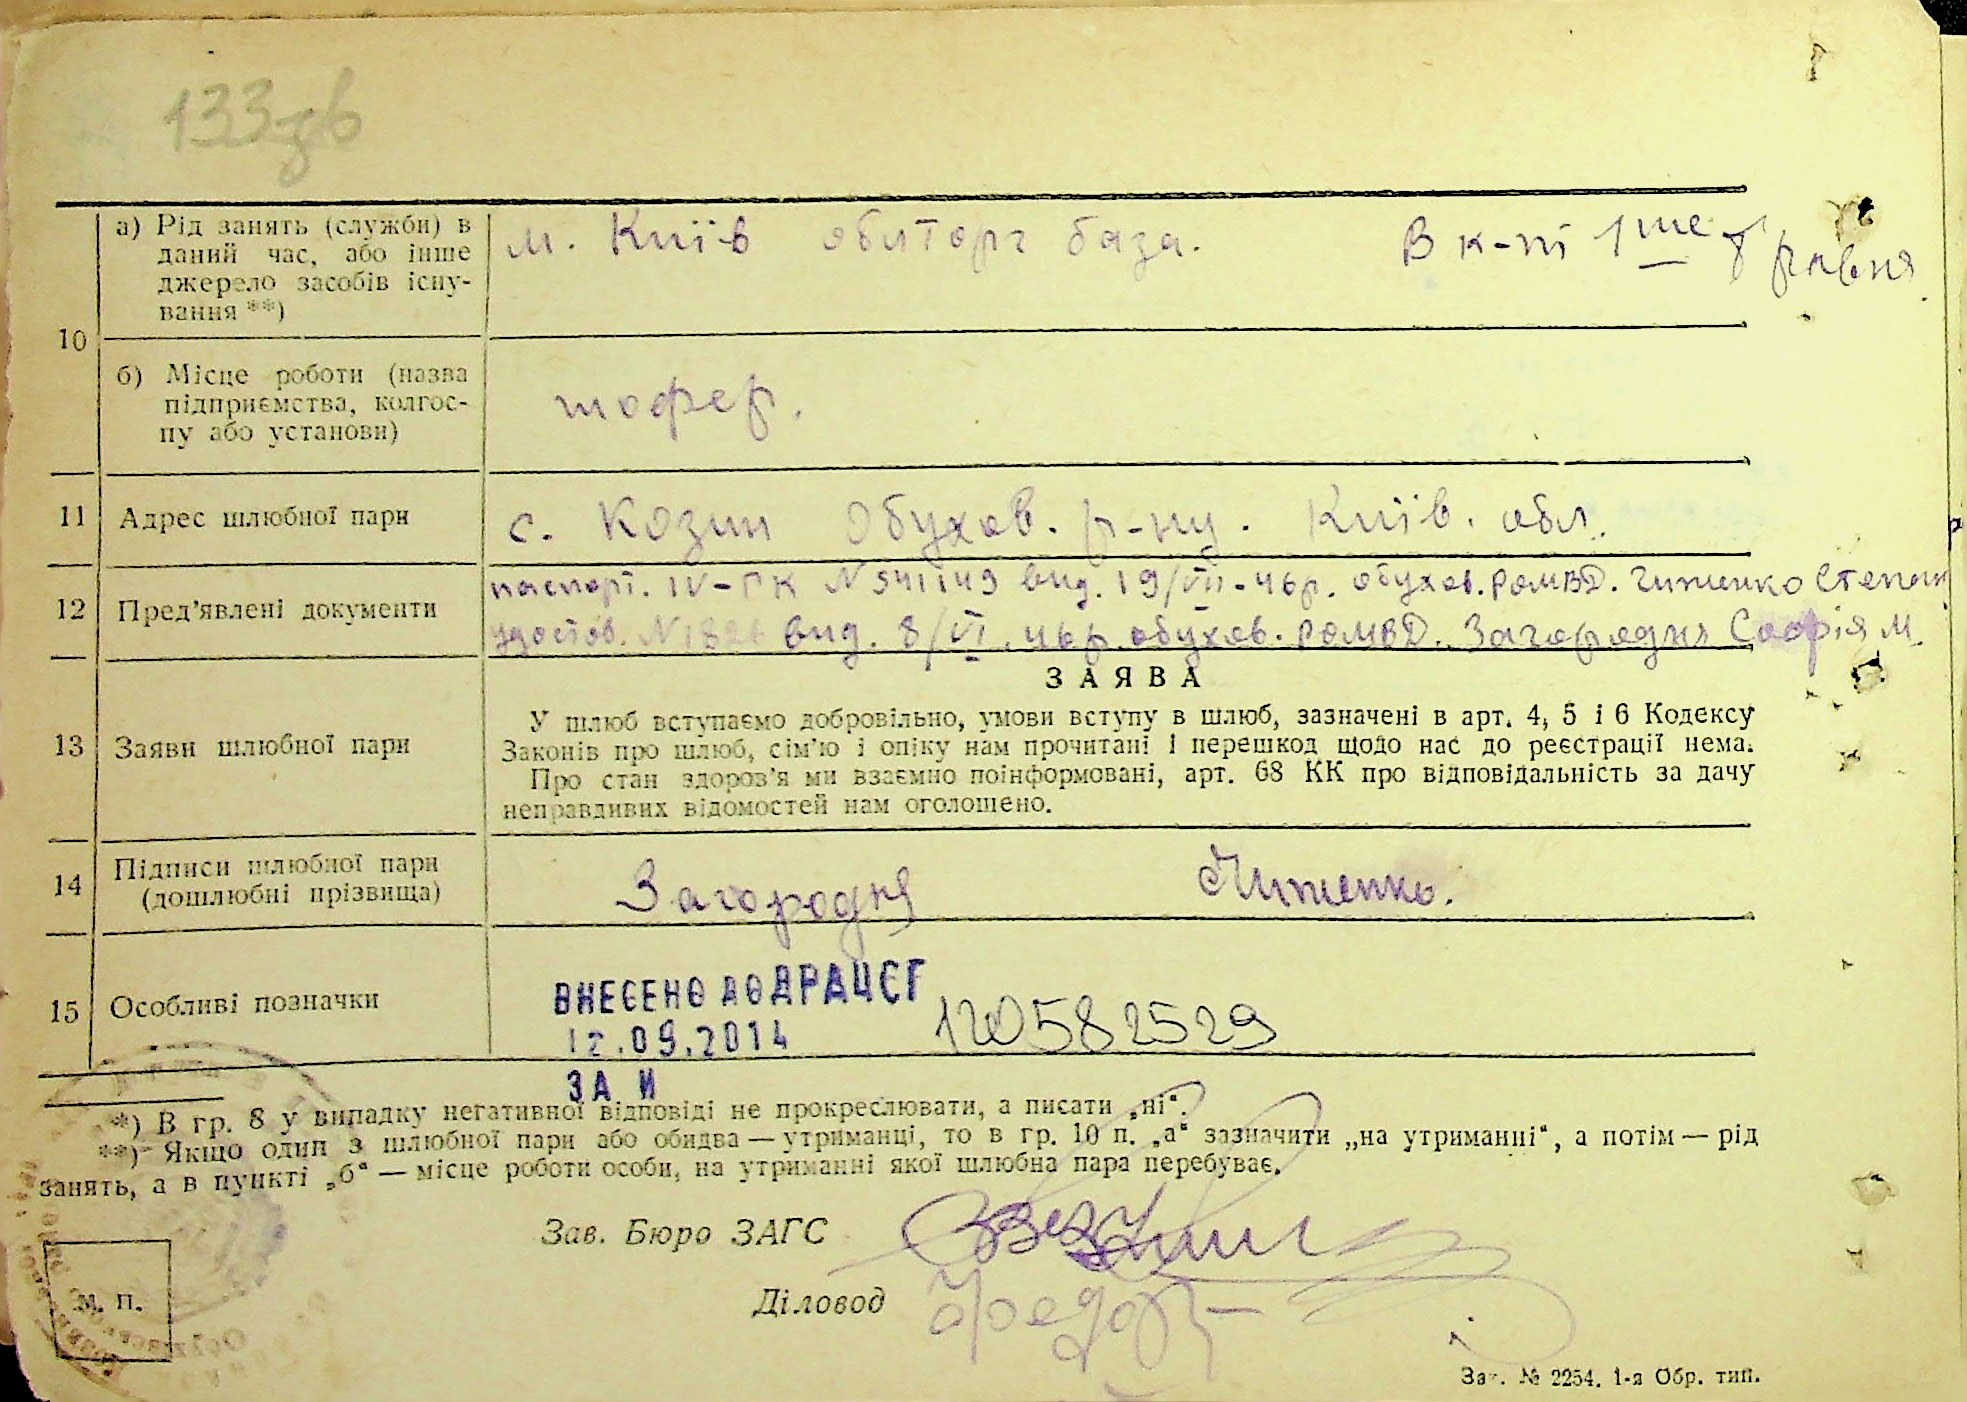 133зв
а) Рід занять (служби) в
даний час, або інше
джерело засобів існу-
вання **)
м. Київ облторг база. В к-пі 1ше травня
10
б) Місце роботи (назва
підприємства, колгос-
пу або установи)
шофер.
11 Адрес шлюбної пари
с. Козин Обухов. р-ну. Київ. обл.
12 Пред'явлені документи
паспорт. IV-ГК N 541149 вид. 19/VII-46р. обухов. РОМВД. Чиженко Степан
удостов. N 1826 вид. 8/VI. 46р. обухов. РОМВД. Загородня Софія М.
13 Заяви шлюбної пари
ЗАЯВА
У шлюб вступаємо добровільно, умови вступу в шлюб, зазначені в арт. 4, 5 і 6 Кодексу
Законів про шлюб, сім'ю і опіку нам прочитані і перешкод щодо нас до реєстрації нема.
Про стан здоров'я ми взаємно поінформовані, арт. 68 КК про відповідальність за дачу
неправдивих відомостей нам оголошено.
14 Підписи шлюбної пари
(дошлюбні прізвища)
Загородня Чиженко.
15 Особливі позначки
ВНЕСЕНО ДО ДРАЦСГ
12.09.2014 120582529
ЗА И
*) В гр. 8 у випадку негативної відповіді не прокреслювати, а писати „ні“.
**) Якщо один з шлюбної пари або обидва — утриманці, то в гр. 10 п. „а“ зазначити „на утриманні“, а потім — рід
занять, а в пункті „б“ — місце роботи особи, на утриманні якої шлюбна пара перебуває.
Зав. Бюро ЗАГС
Діловод
М. П.
Зак. № 2254. 1-а Обр. тип.